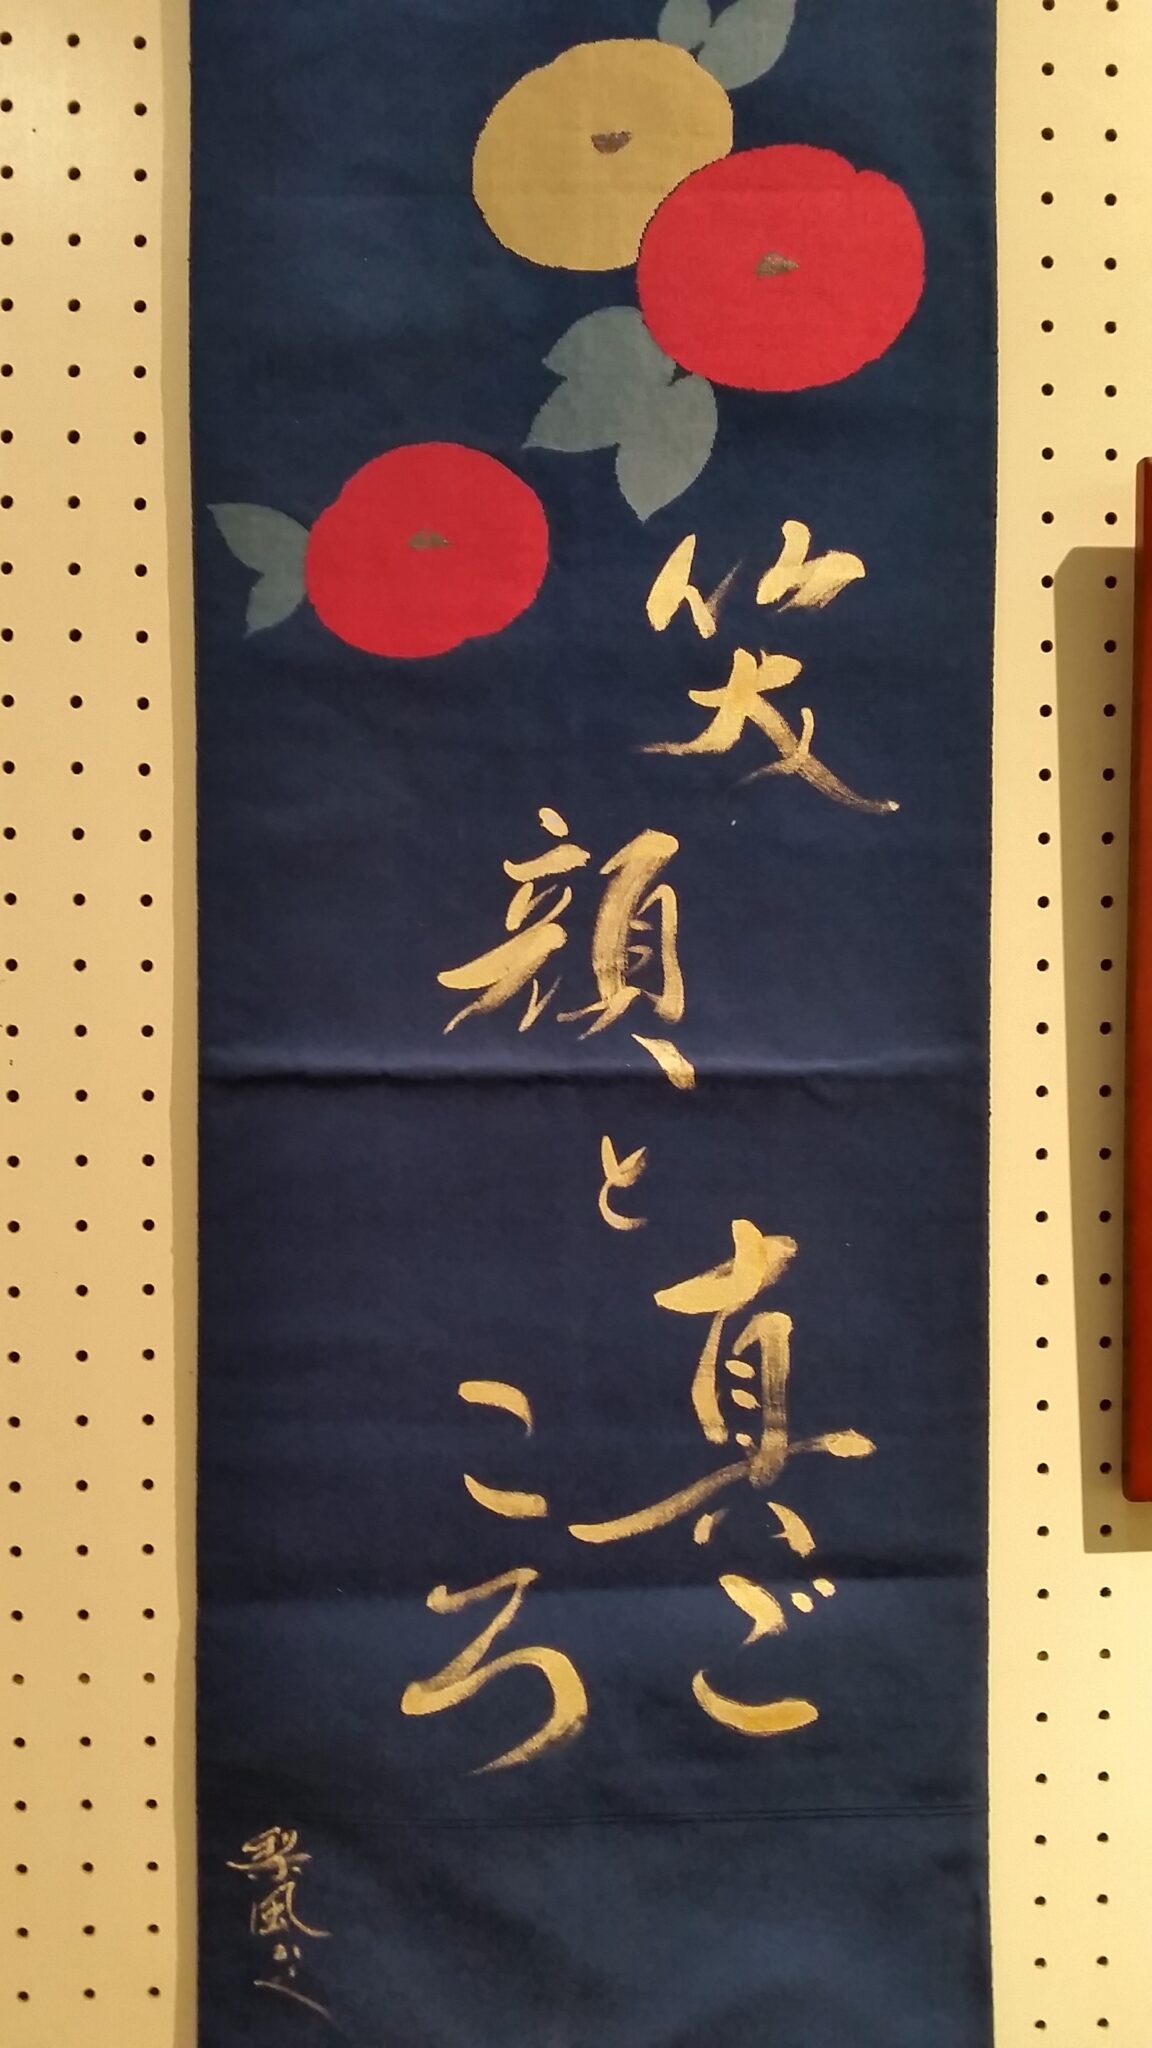 笑顔と真ご
ころ
梨風かく